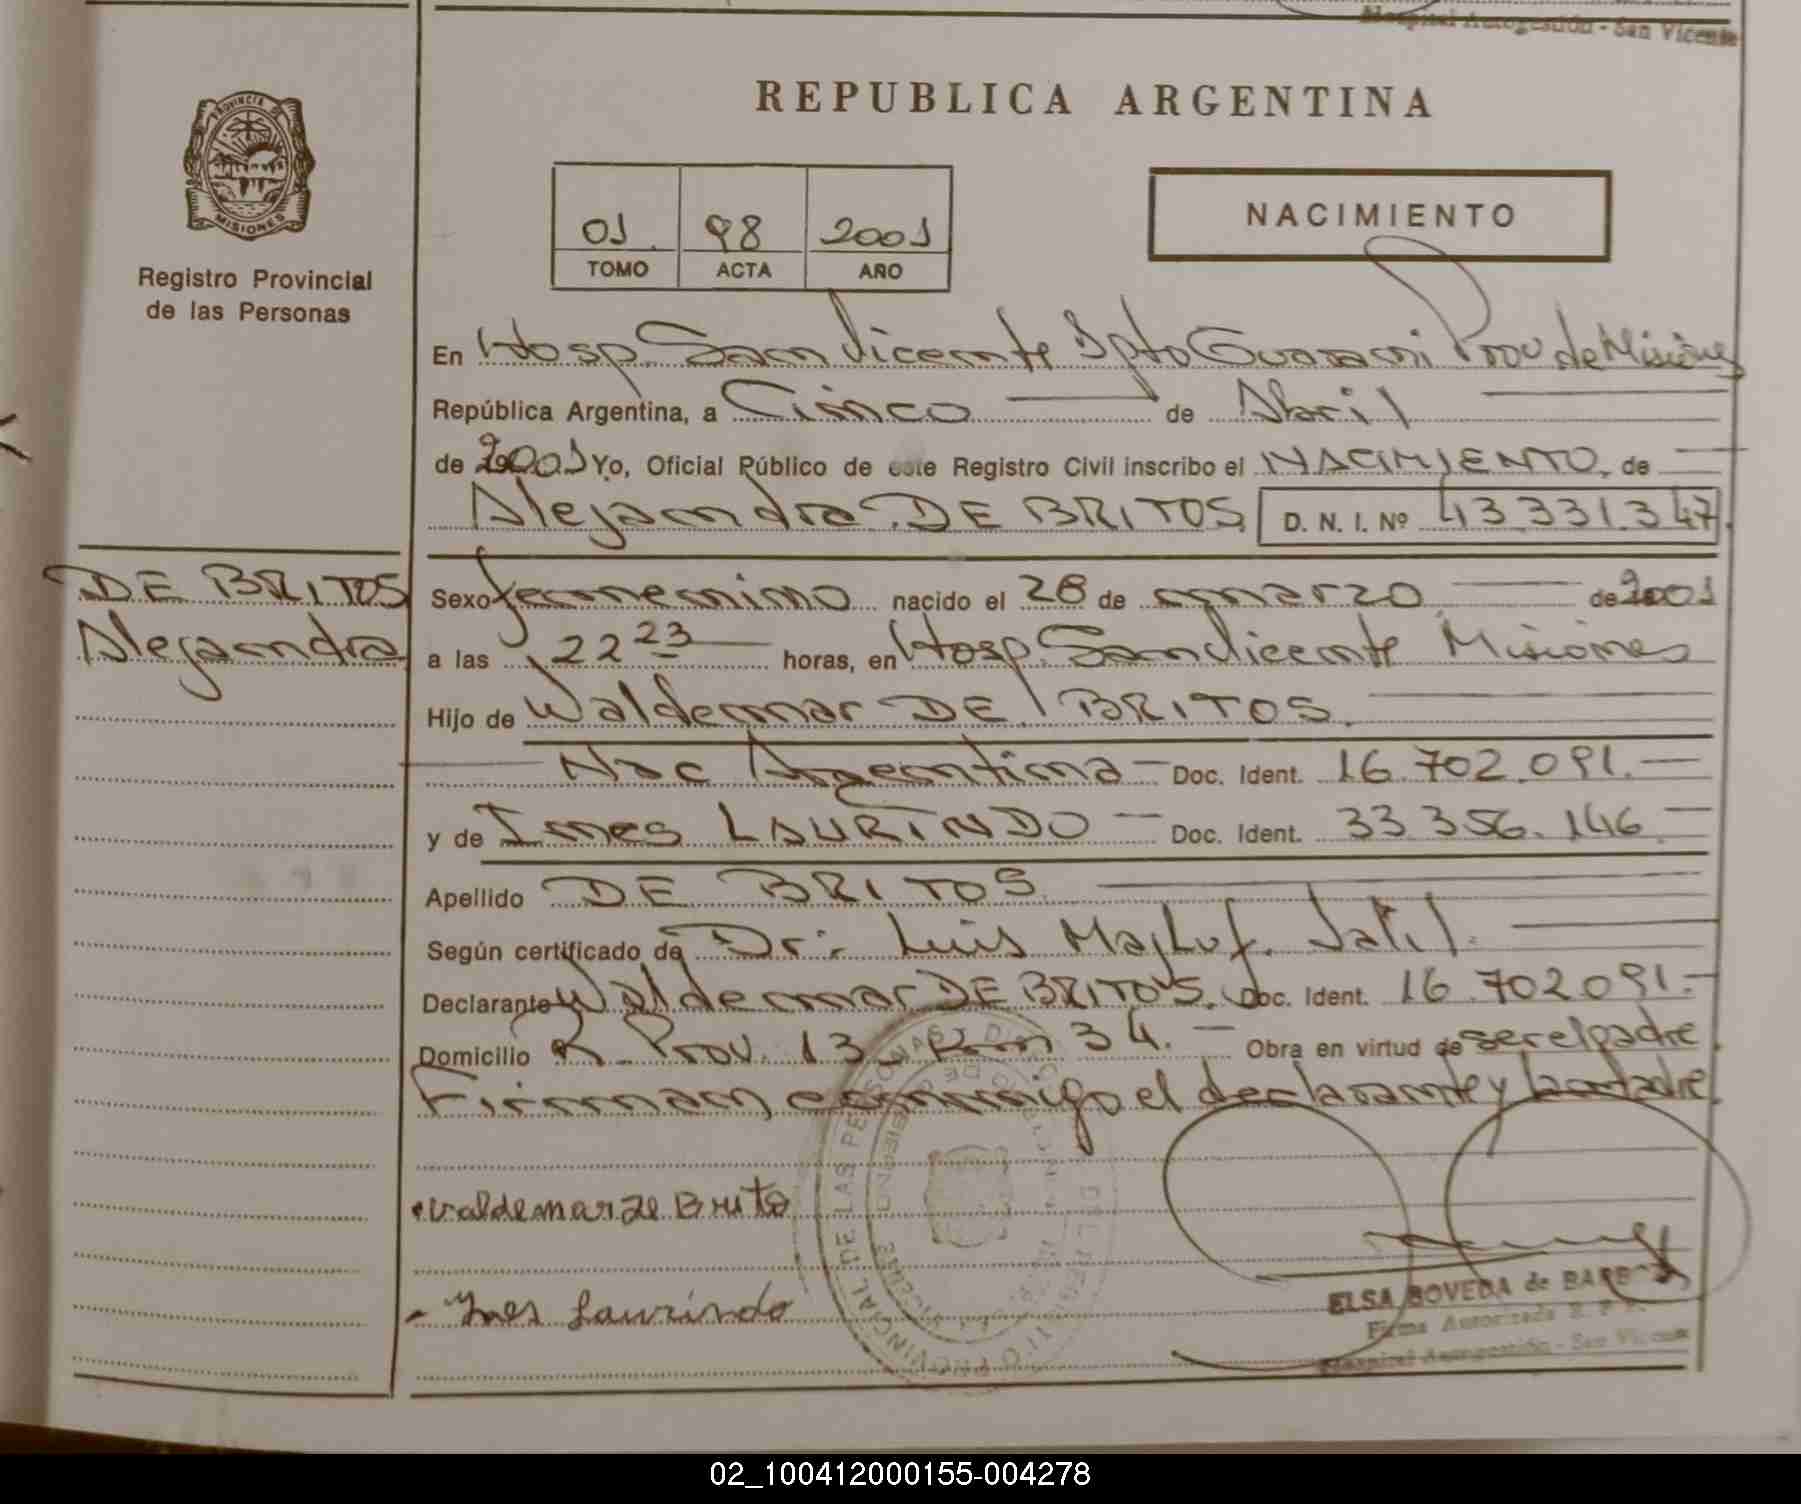 Hospital Autogestión - San Vicente
PROVINCIA DE
MISIONES
Registro Provincial
de las Personas
REPUBLICA ARGENTINA
01 98 2001
TOMO ACTA AÑO
NACIMIENTO
En Hosp. San Vicente Dpto Guarani Prov de Misiones
República Argentina, a Cinco de Abril
de 2001 Yo, Oficial Público de este Registro Civil inscribo el NACIMIENTO, de
Alejandra DE BRITOS D. N. I. Nº 43.331.347
DE BRITOS
Alejandra
Sexo femenino nacido el 28 de marzo de 2001
a las 22 23 horas, en Hosp. San Vicente Misiones
Hijo de Waldemar DE BRITOS.
Nac Argentina - Doc. Ident. 16.702.091.-
y de Ines LAURINDO - Doc. Ident. 33.356.146
Apellido DE BRITOS.
Según certificado de Dr: Luis Majluf. Jalil.
Declarante Waldemar DE BRITOS. Doc. Ident. 16.702.091.-
Domicilio R. Prov. 13 Km 34. - Obra en virtud de ser el padre
Firman conmigo el declarante y la madre
valdemar de Brito
- Ines Laurindo
ELSA BOVEDA de
Firma Autorizada R. P. P.
Hospital Autogestión - San Vicente
02_100412000155-004278